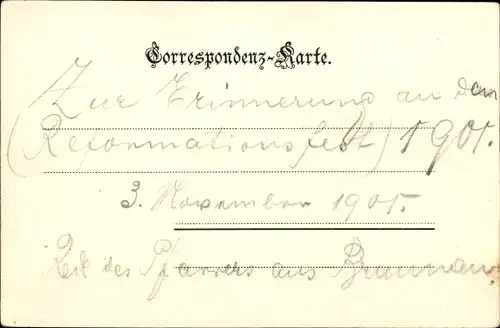 Correspondenz-Karte.
Zur Erinnerung an dem
(Reformationsfest) 1901.
3. November 1901.
des Pfarrers aus Braunau